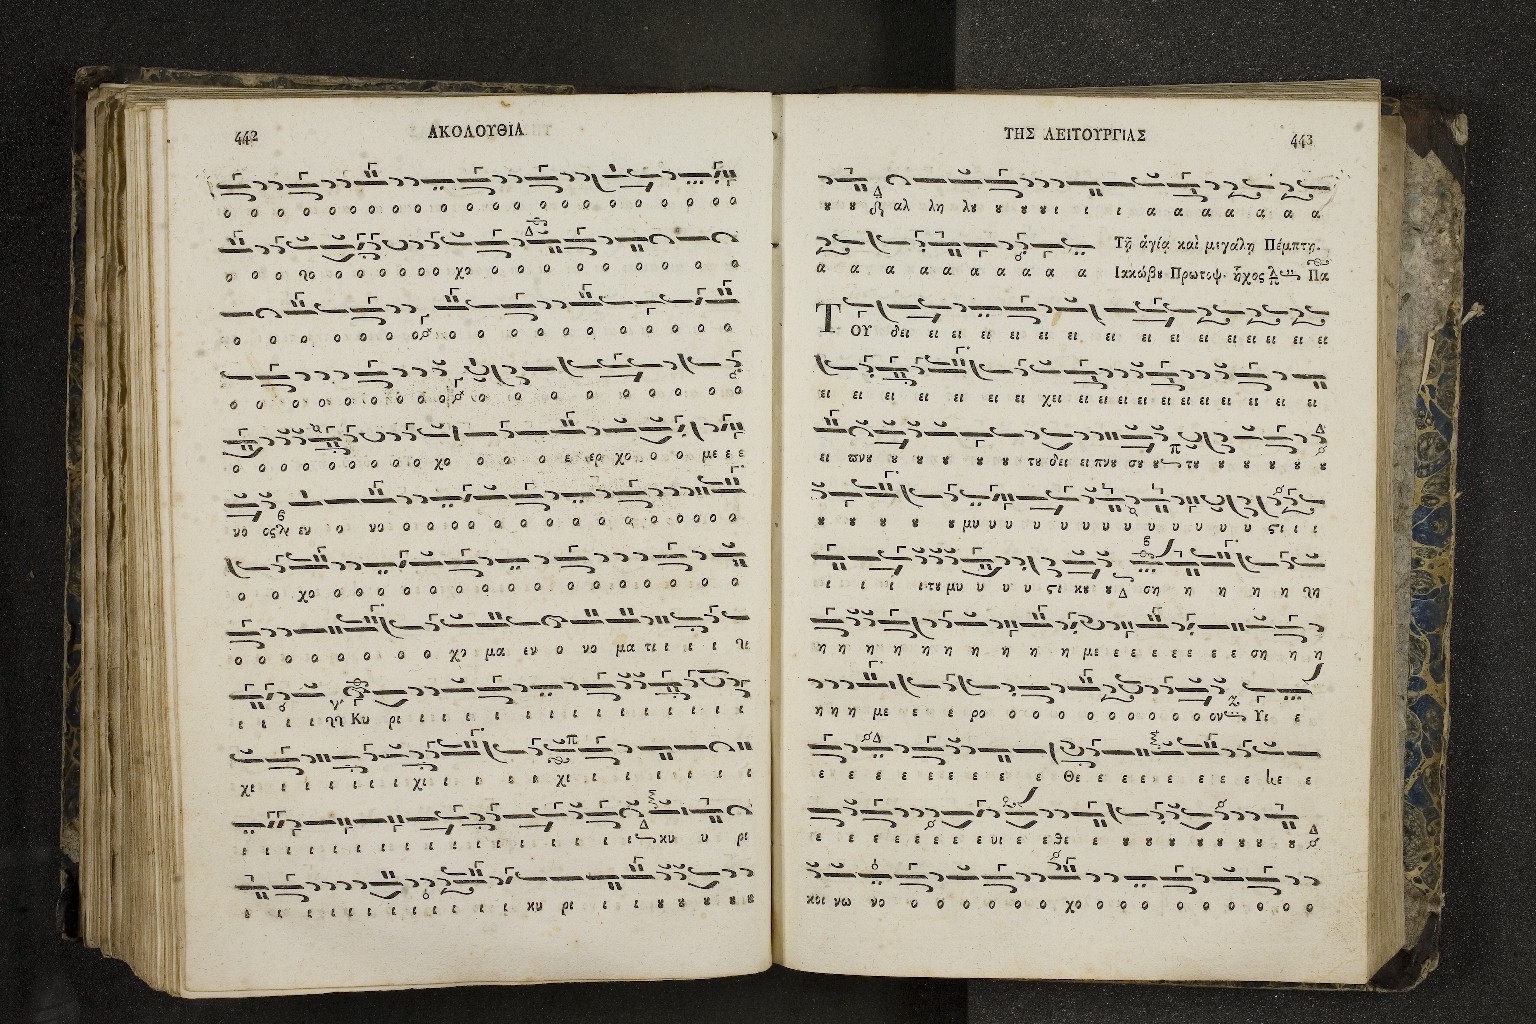 442 ΑΚΟΛΟΥΘΙΑ
ο ο ο ο ο ο ο ο ο ο ο ο ο ο ο ο ο ο ο ο ο ο ο
χο ο ο ο ο ο ο ο
ο ο ο ο ο ο ο ο ο ο ο ο ο ο ο ο ο
ο ο ο ο ο ο ο ο ο ο ο ο ο ο ο ο ο
ο ο ο ο ο ο ο ο ο χο ο ο ο ε ερ χο ο ο με ε ε
νο ος εν ο νο ο ο ο ο ο ο ο ο ο ο ο ο ο ο
ο ο χο ο ο ο ο ο ο ο ο ο ο ο ο ο ο
ο ο ο ο ο ο ο χο μα εν ο νο μα τι ι ι ι
ι ι ι ι Κυ ρι ι ι ι ι ι ι ι ι ι ι ι ι ι
χι ι ι ι ι χι ι ι ι χι ι ι ι ι ι ι
ι ι ι ι ι ι ι ι ι ι ι ι ι ι ι ι κυ υ ρι
ι ι ι ι ι ι ι ι ι ι ι ι κυ ρι ι ι ȣ ȣ ȣ ȣ ȣ
ΤΗΣ ΛΕΙΤΟΥΡΓΙΑΣ 443
ȣ ȣ αλ λη λȣ ȣ ȣ ȣ ι ι ι α α α α α α α
α α α α α α α α α α Τῇ ἁγίᾳ καὶ μεγάλῃ Πέμπτῃ.
Ιακώβȣ Πρωτοψ. ἦχος Πα
ΤΟΥ δει ει ει ει ει ει ει ει ει ει ει ει ει ει ει
ει ει ει ει ει ει ει χει ει ει ει ει ει ει ει ει ει ει
ει πνȣ ȣ ȣ ȣ ȣ ȣ ȣ τȣ δει ει πνȣ σȣ ȣ τȣ ȣ ȣ ȣ ȣ
ȣ ȣ ȣ ȣ ȣ μυ υ υ υ υ υ υ υ υ υ υ υ υ ςι ι ι
ι ι ι ι τȣ μυ υ υ υ ςι κȣ ȣ ση η η η η
η η η η η η η η η η η με ε ε ε ε ε ε ση η η
η η η με ε ε ρο ο ο ο ο ο ο ο ο ο ον Υι ε
ε ε ε ε ε ε ε ε ε Θε ε ε ε ε ε ε ε ε ε
ε ε ε ε ε ε ε ε υι ε ε θε ε ȣ ȣ ȣ ȣ ȣ ȣ ȣ ȣ
κοι νω νο ο ο ο ο ο ο χο ο ο ο ο ο ο ο ο ο